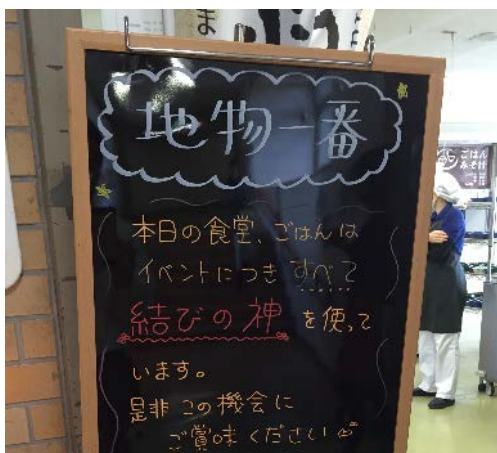 地物一番
本日の食堂、ごはんは
イベントにつきすべて
結びの神 を使って
います。
是非この機会に
ご賞味ください
ごはん
みそ汁